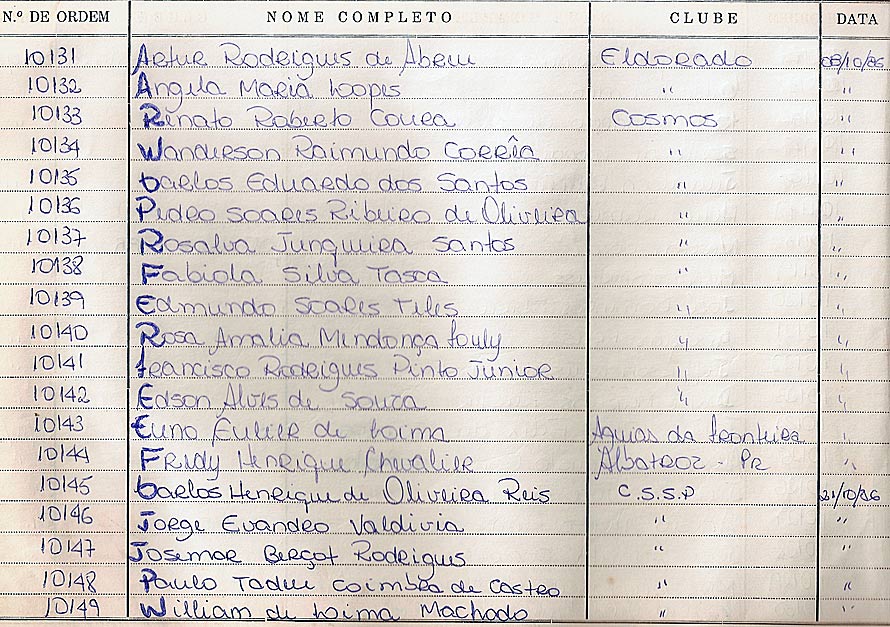 N.º DE ORDEM NOME COMPLETO CLUBE DATA
10131 Artur Rodrigues de Abreu Eldorado 08/10/86
10132 Angela Maria Lopes " "
10133 Renato Roberto Coura Cosmos "
10134 Wanderson Raimundo Corrêa " "
10135 Carlos Eduardo dos Santos " "
10136 Pedro Soares Ribeiro de Oliveira " "
10137 Rosalva Junqueira Santos " "
10138 Fabiola Silva Tosca " "
10139 Edmundo Soares Teles " "
10140 Rosa Amalia Mendonça Louly " "
10141 Francisco Rodrigues Pinto Junior " "
10142 Edson Alves de Souza " "
10143 Euno de Lima Aguias da Fronteira "
10144 Fredy Henrique Chevalier Albatroz - Pr "
10145 Carlos Henrique de Oliveira Reis C.S.S.P 21/10/86
10146 Jorge Evandro Valdivia " "
10147 Josemar Berçot Rodrigues " "
10148 Paulo Tadeu Coimbra de Castro " "
10149 William de Lima Machado " "